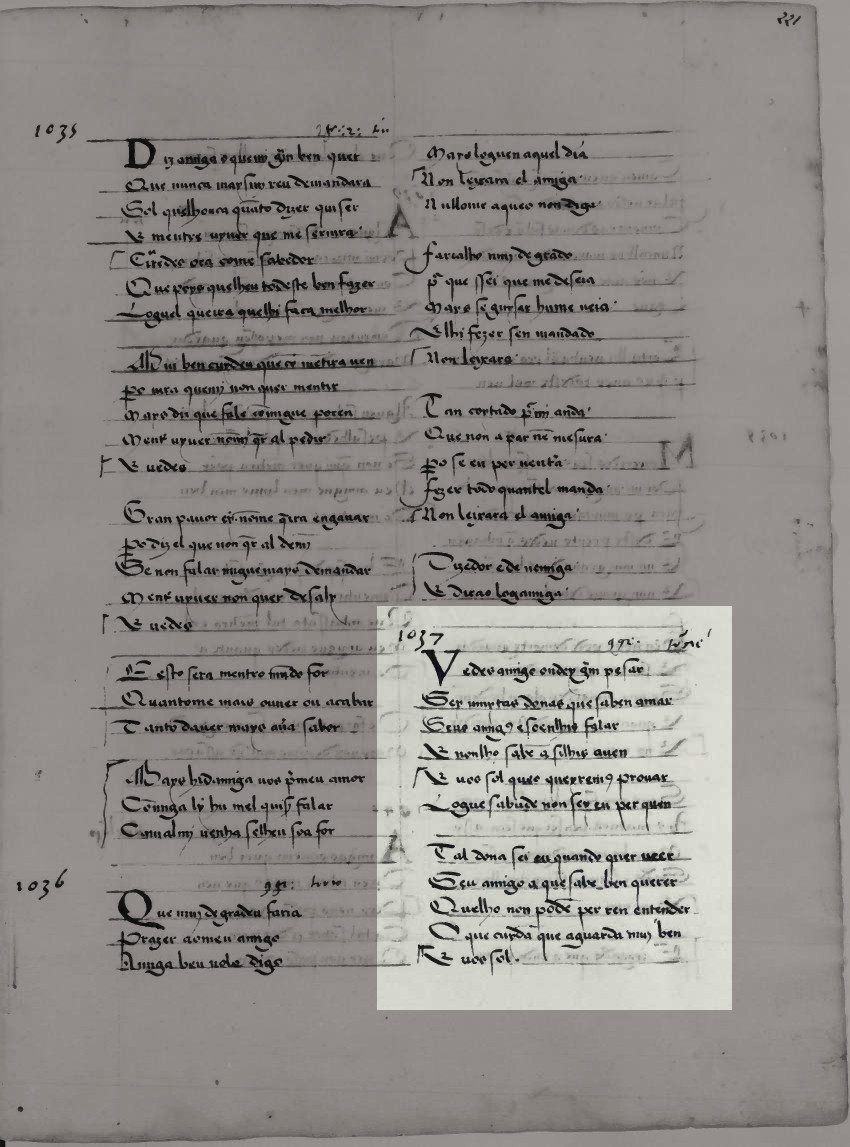 221
1035
Diz amiga o quemi gram ben quer
Que nunca mays mi rreu demandara
Sol quelhouca quanto dizer quiser
E mentre uyuer que me seruira
Veedes ora come sabedor
Que pero quelheu todeste ben fazer
Loguel queira quelhi faca melhor
Mui ben cuydeu que con mentira uen
pero iura quemi non quer mentir
Mays diz que fale comigue poren
Ment uyuer nomi qr al pedir
E uedes
Gran pauor ey nonme qira enganar
Pero diz el que non qr al demi
Se non falar miguemays demandar
Ment uyuer non quer desaly
E uedes
E esto sera mentro mundo for
Quantome mais ouuer ou acabar
Tanto dauer mays aua sabor
Mays hidamiga uos pr meu amor
Comiga ly hu mel quiser falar
Camalmi uenha selheu soa for
1036
Que muy de gradeu faria
Prazer ao meu amigo
Amiga ben uolo digo
Mays loguen aquel dia
Non leixara el amiga
Nullome aqueo non diga
farealho mui degrado
pr que ssei que me deseia
Mays se guysar hume ueia
Elhi fezer sen mandado
Non leyxara
Tan coytado pr mi anda
Que non a par ne mesura
Pero se eu per uentura
fezer todo quantel manda
Non leixara el amiga
Tyzedor e de nemiga
E dirao logamiga
1037
Vedes amigo ondey gram pesar
Sey muytas donas que saben amar
Seus amigos e soenlhis falar
E nonlho sabe a silhis auen
E uos sol que o queyramos prouar
Logue sabude non sey eu per quen
Tal dona sei eu quando quer ueer
Seu amigo a que sabe ben querer
Quelho non pode per ren entender
O que cuyda que aguarda muy ben
E uos sol.